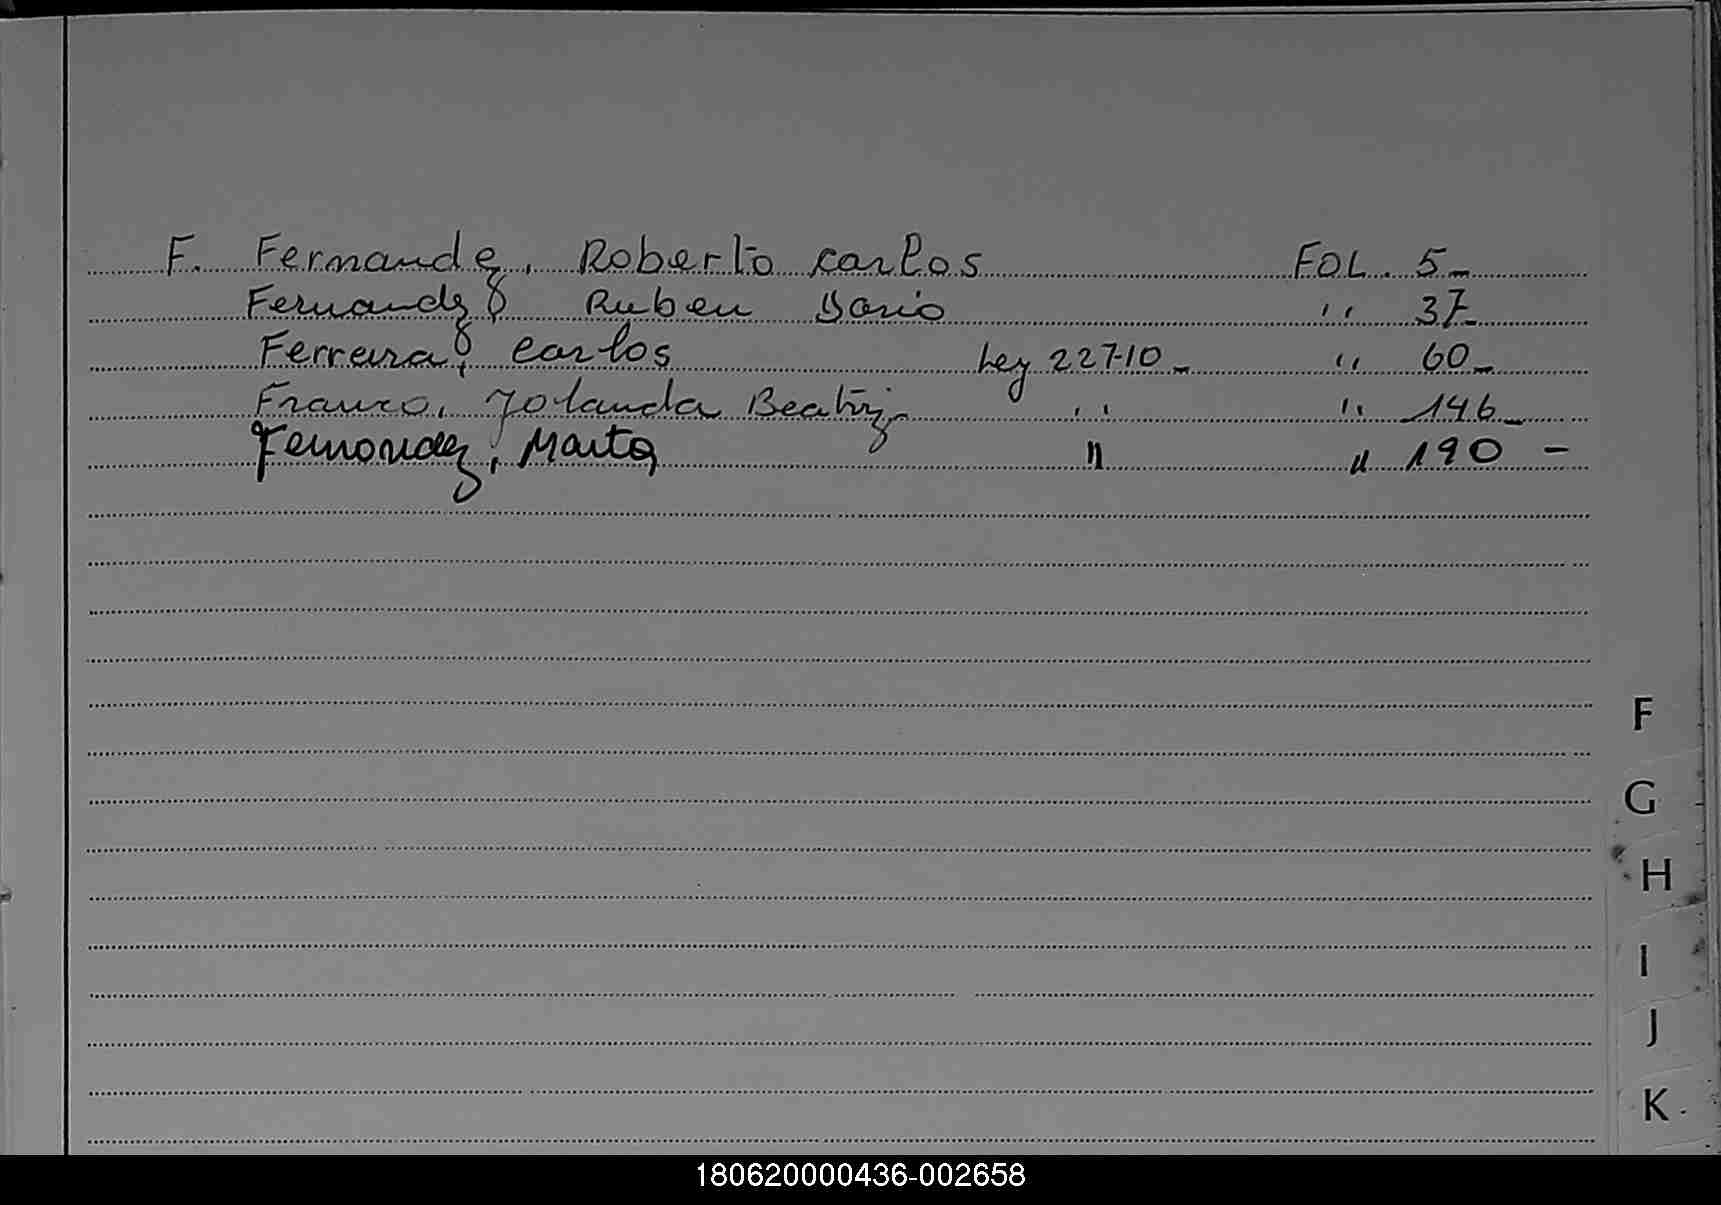 F. Fernandez, Roberto Carlos FOL. 5-
Fernandez, Ruben Dario '' 37-
Ferreira, Carlos Ley 22710- '' 60-
Franco, Yolanda Beatriz- '' '' 146-
Fernandez, Marta '' '' 190-
F
G
H
I
J
K
180620000436-002658